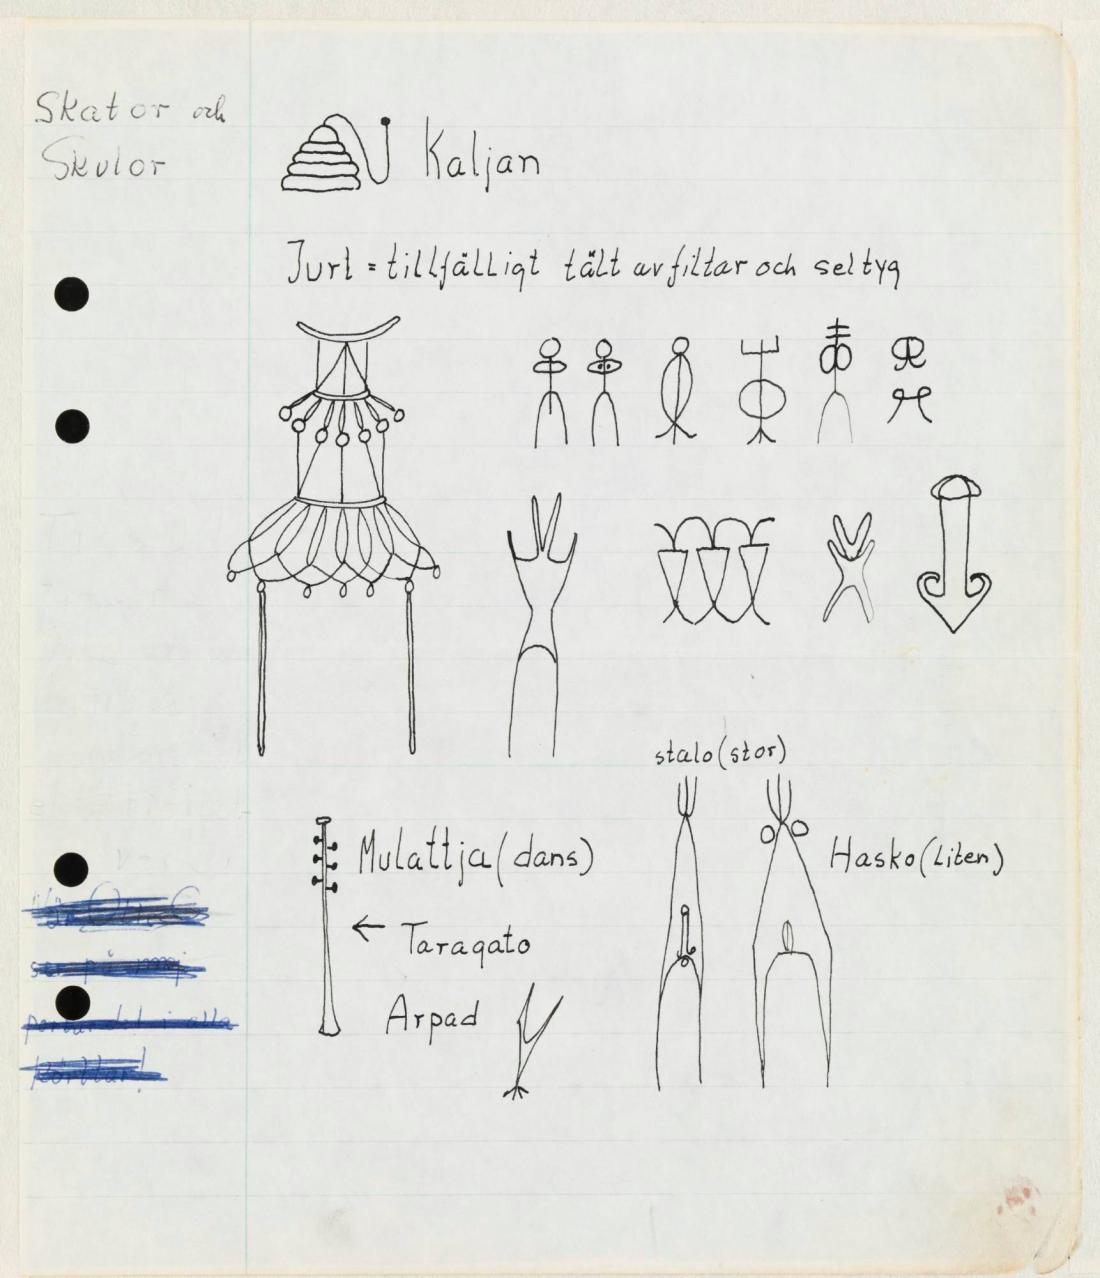 Skator och
Skulor
Kaljan
Jurt = tillfälligt tält av filtar och seltyg
stalo (stor)
Mulattja (dans)
Hasko (Liten)
← Taragato
Arpad
ser på mig
i alla